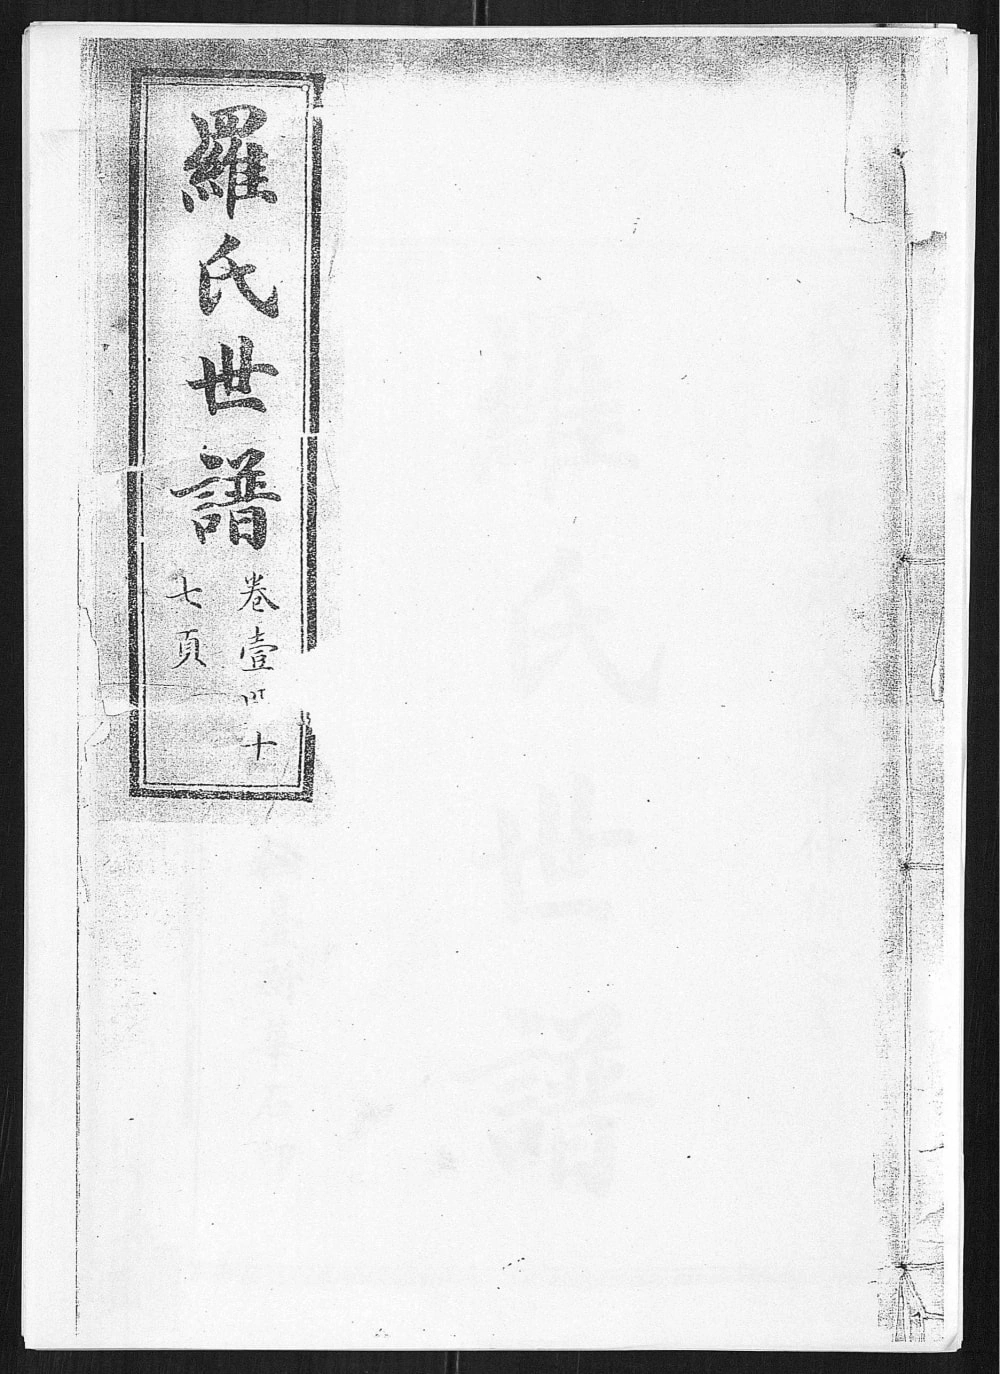 羅氏世譜
卷壹 四十
七頁